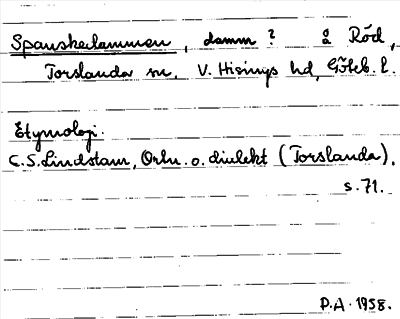 Spanskedammen, damm? å Röd,
Torslanda sn, V. Hisings hd, Göteb. l.
Etymologi.
C.S. Lindstam, Ortn. o. dialekt (Torslanda),
s. 71.
P.A. 1958.